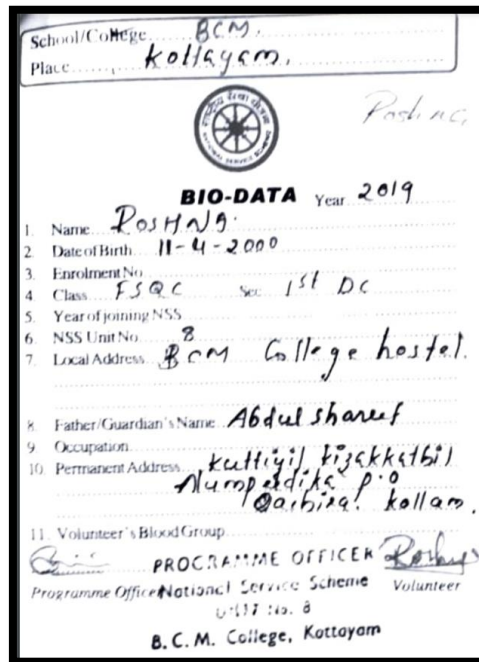 School/College BCM.
Place Kottayam.
राष्ट्रीय सेवा योजना
NATIONAL SERVICE SCHEME
BIO-DATA Year 2019
1. Name ROSHNA.
2. Date of Birth 11-4-2000
3. Enrolment No
4. Class FSQC Sec 1st DC
5. Year of joining NSS
6. NSS Unit No. 8
7. Local Address BCM College hostel.
8. Father/Guardian's Name Abdul shareef
9. Occupation
10. Permanent Address kuttiyil kizakkathil
P.O
kollam.
11. Volunteer's Blood Group
PROGRAMME OFFICER
Programme Officer National Service Scheme Volunteer
UNIT No. 8
B.C.M. College, Kottayam